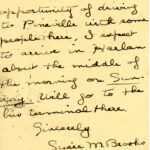 opportunity of driving
to Pineville with some
people here, I expect
to arrive in Harlan
about the middle of
the morning on Sun-
day. Will go to the
bus terminal there.
Sincerely
Susie M. Brooks